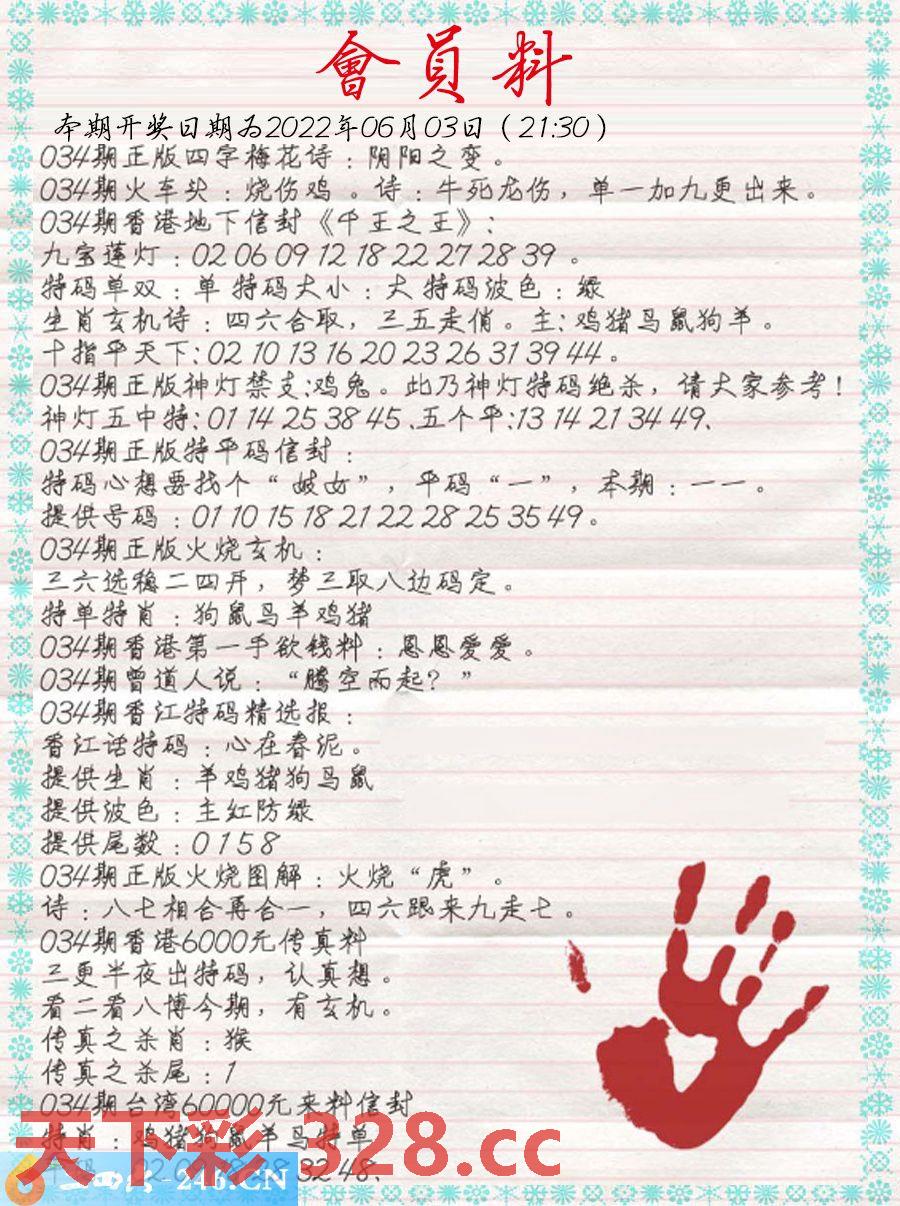 會員料
本期开奖日期为2022年06月03日（21:30）
034期正版四字梅花诗：阴阳之变。
034期火车头：烧伤鸡。诗：牛死龙伤，单一加九更出来。
034期香港地下信封《千王之王》:
九宝莲灯：02 06 09 12 18 22 27 28 39 。
特码单双：单 特码大小：大 特码波色：绿
生肖玄机诗：四六合取，三五走俏。主: 鸡猪马鼠狗羊。
十指平天下: 02 10 13 16 20 23 26 31 39 44 。
034期正版神灯禁支:鸡兔。此乃神灯特码绝杀，请大家参考！
神灯五中特: 01 14 25 38 45 、五个平:13 14 21 34 49、
034期正版特平码信封：
特码心想要找个“妓女”，平码“一”，本期：一一。
提供号码：01 10 15 18 21 22 28 25 35 49。
034期正版火烧玄机：
三六选稳二四开，梦三取八边码定。
特单特肖：狗鼠马羊鸡猪
034期香港第一手欲钱料：恩恩爱爱。
034期曾道人说：“腾空而起？”
034期香江特码精选报：
香江话特码：心在春泥。
提供生肖：羊鸡猪狗马鼠
提供波色：主红防绿
提供尾数：0 1 5 8
034期正版火烧图解：火烧“虎”。
诗：八七相合再合一，四六跟来九走七。
034期香港6000元传真料
三更半夜出特码，认真想。
看二看八博今期，有玄机。
传真之杀肖：猴
传真之杀尾：1
034期台湾60000元来料信封
特肖：鸡猪狗鼠羊马特单
32 48、
天下彩 328.cc
-246.CN